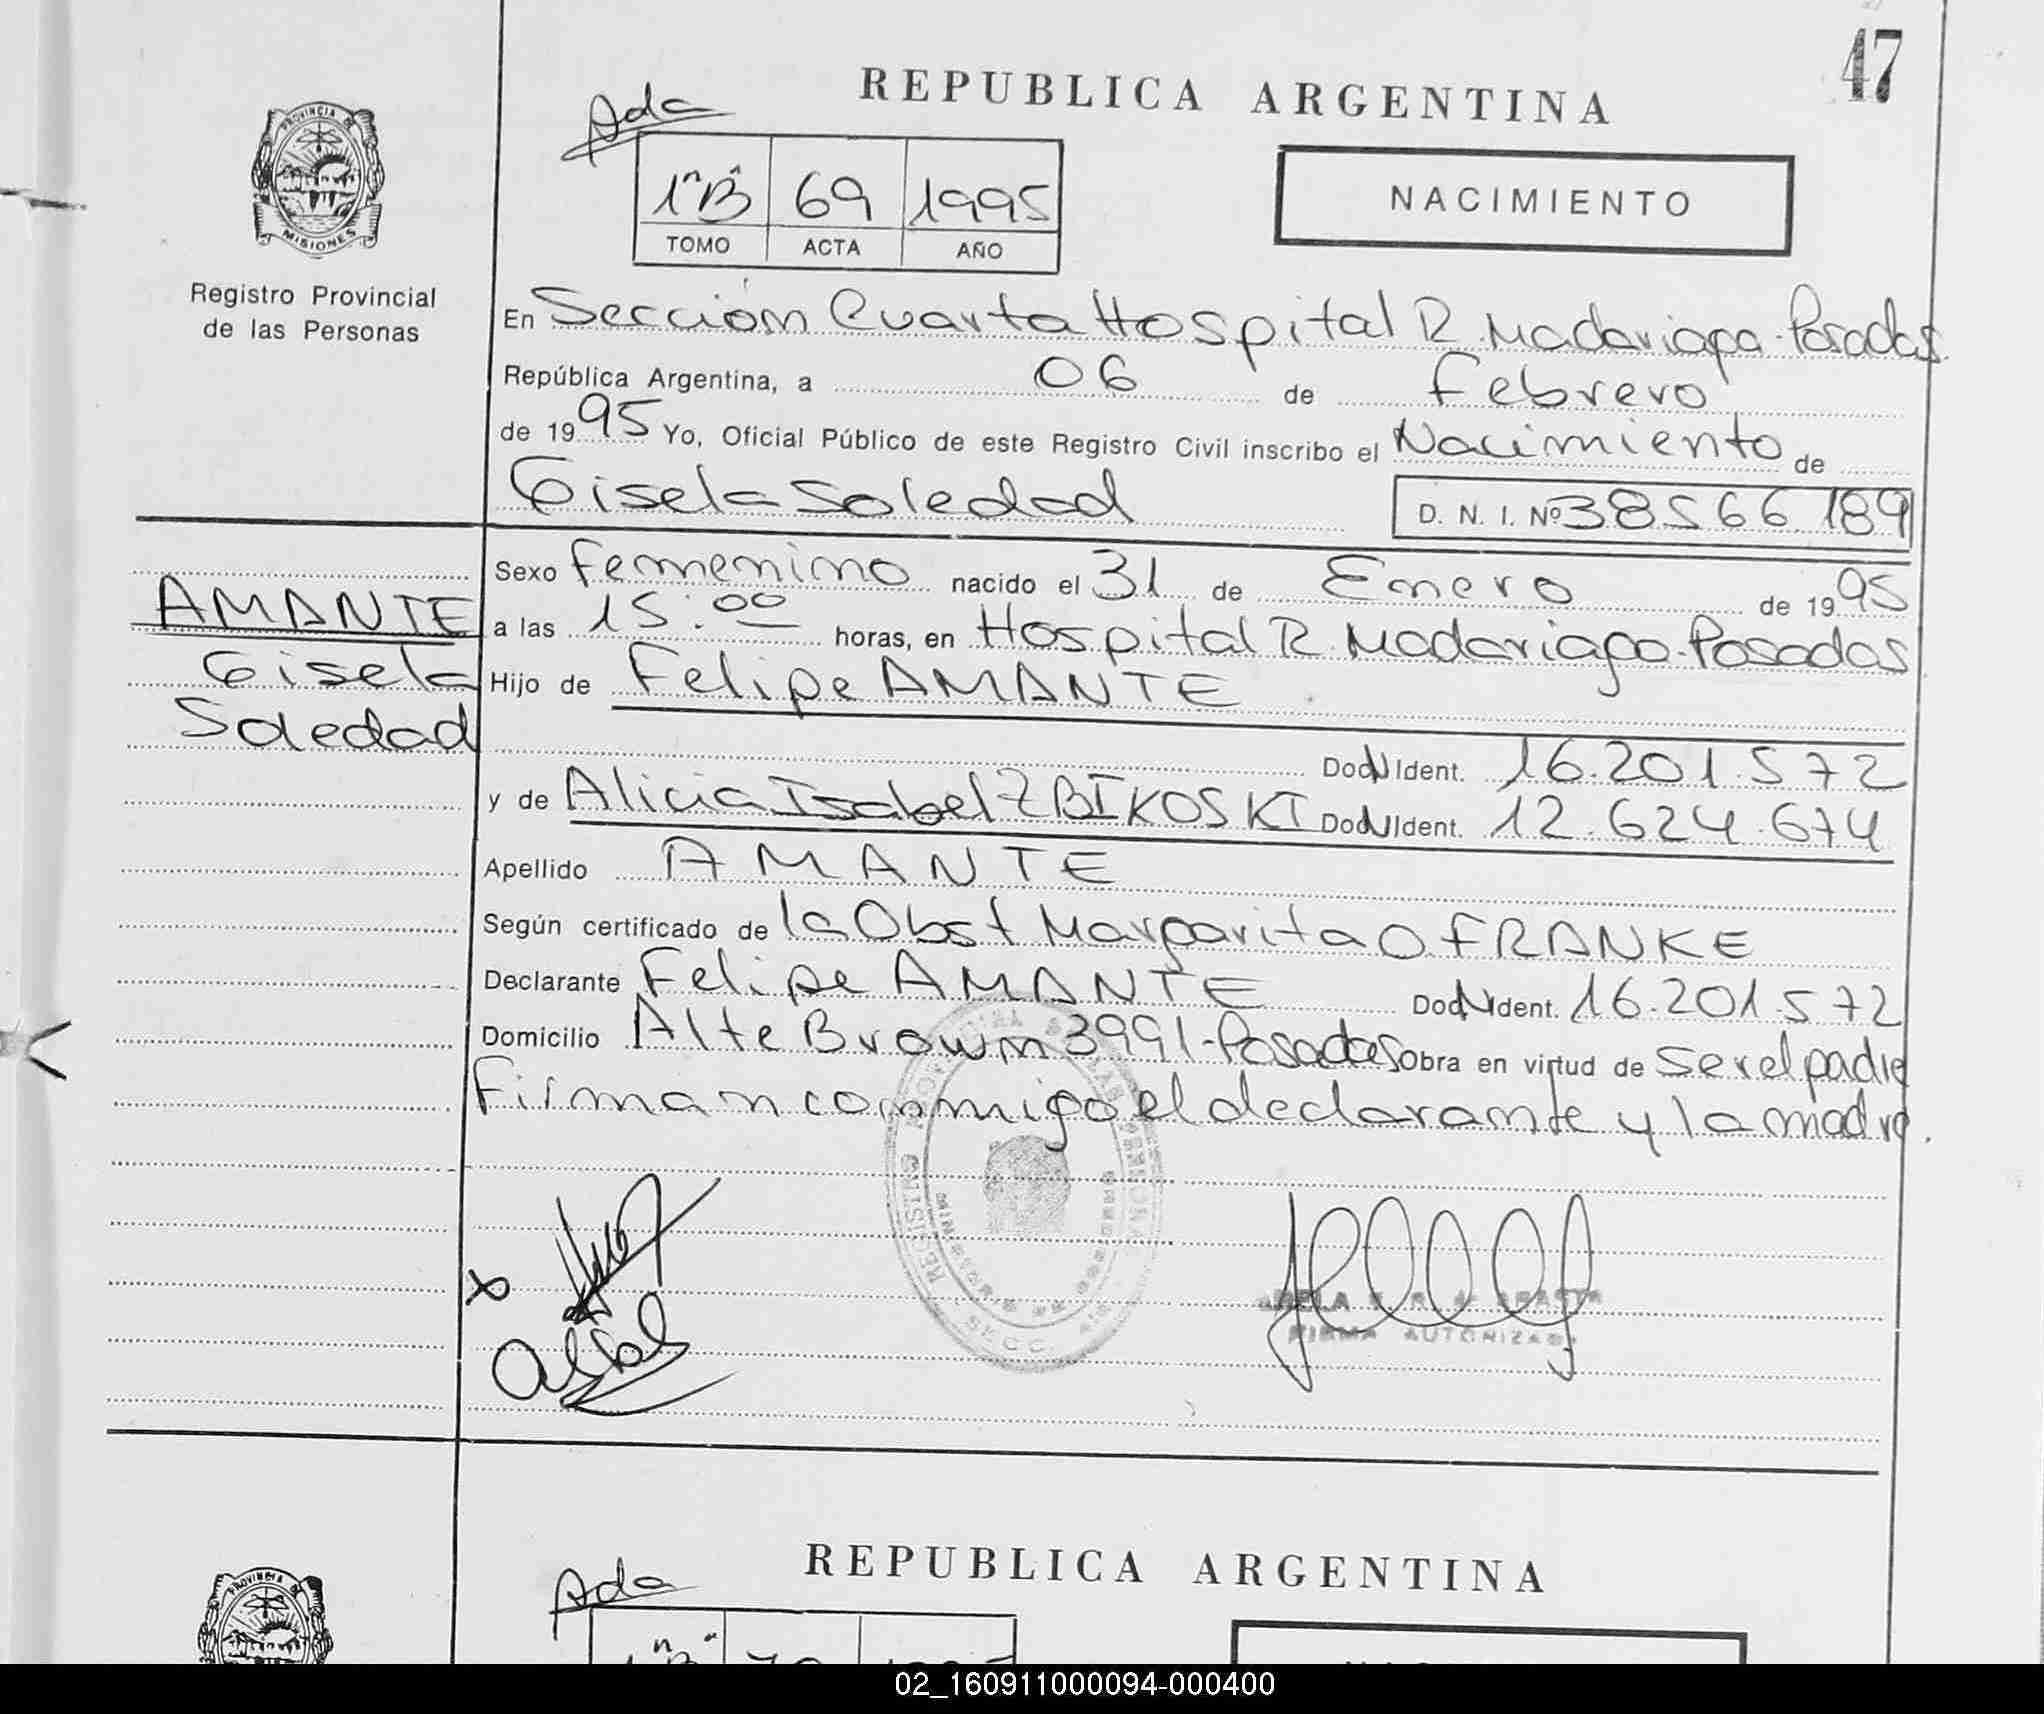 47
REPUBLICA ARGENTINA
Ada
1"B" 69 1995
TOMO ACTA AÑO
NACIMIENTO
PROVINCIA DE
MISIONES
Registro Provincial
de las Personas
En Sección Cuarta Hospital R. Madariaga - Posadas
República Argentina, a 06 de Febrero
de 1995 Yo, Oficial Público de este Registro Civil inscribo el Nacimiento de
Gisela Soledad D. N. I. Nº 38566189
AMANTE
Gisela
Soledad
Sexo Femenino nacido el 31 de Enero de 1995
a las 15:00 horas, en Hospital R. Madariaga - Posadas
Hijo de Felipe AMANTE
Ident. 16.201.572
y de Alicia Isabel ZBIKOSKI Ident. 12.624.674
Apellido AMANTE
Según certificado de la Obst Margarita O FRANKE
Declarante Felipe AMANTE Ident. 16.201.572
Domicilio Alte Brown 3991 - Posadas Obra en virtud de ser el padre
Firman conmigo el declarante y la madre.
FIRMA AUTORIZADA
REPUBLICA ARGENTINA
Ada
PROVINCIA DE
02_160911000094-000400